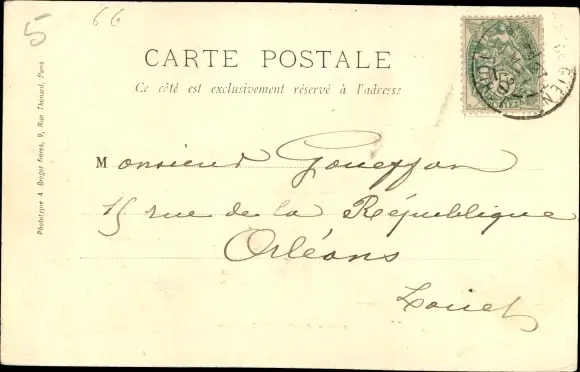 5
66
CARTE POSTALE
Ce côté est exclusivement réservé à l'adresse
POSTES
Phototypie A. Breger Frères, 9, Rue Thénard, Paris
Monsieur Goueffon
15 rue de la République
Orléans
Loiret